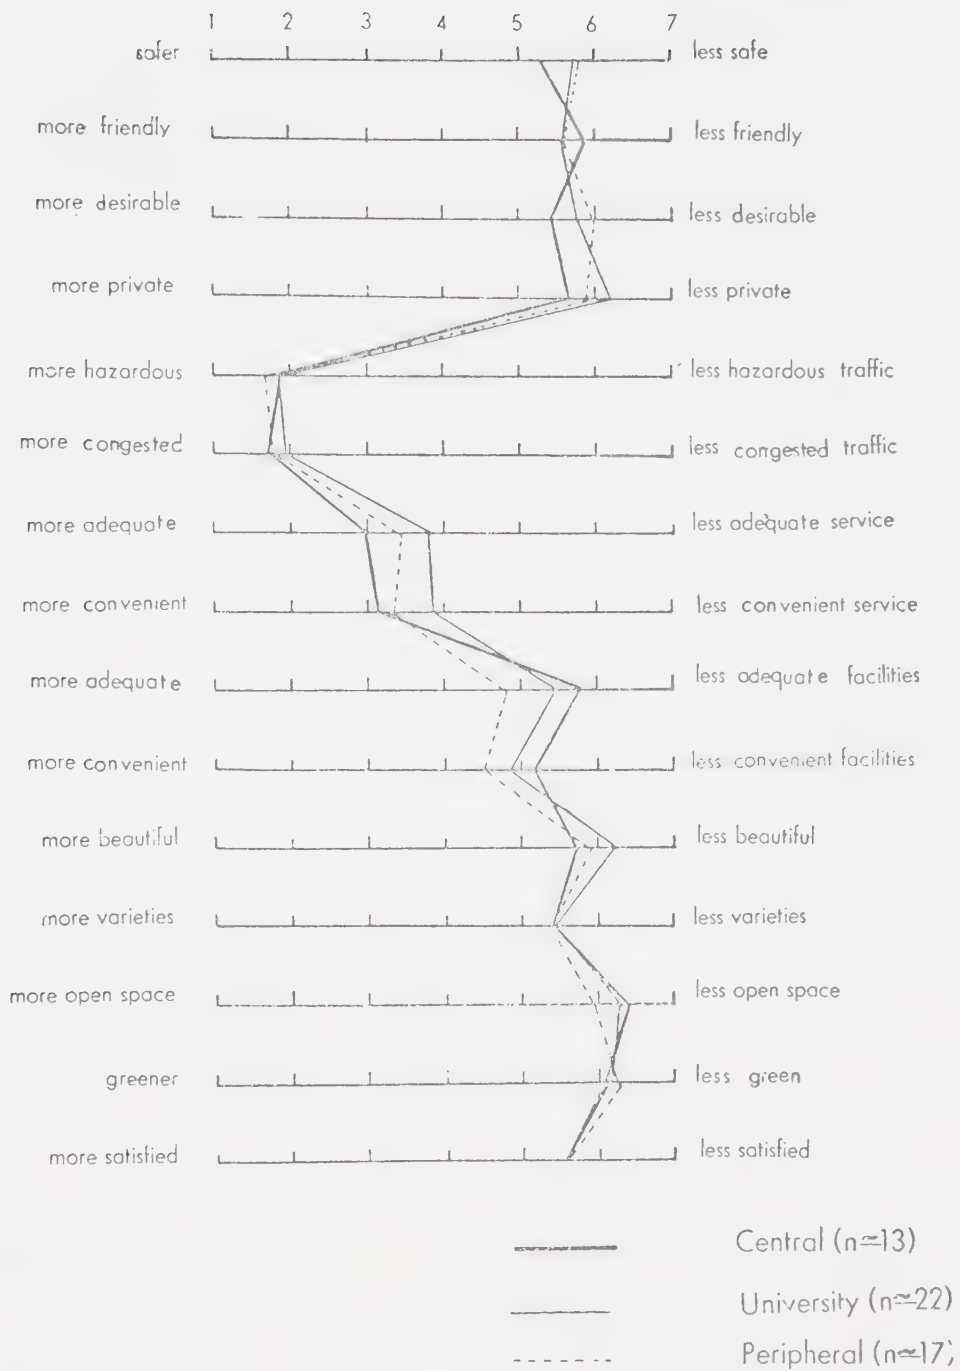 1 2 3 4 5 6 7
safer less safe
more friendly less friendly
more desirable less desirable
more private less private
more hazardous less hazardous traffic
more congested less congested traffic
more adequate less adequate service
more convenient less convenient service
more adequate less adequate facilities
more convenient less convenient facilities
more beautiful less beautiful
more varieties less varieties
more open space less open space
greener less green
more satisfied less satisfied
Central (n≃13)
University (n≃22)
Peripheral (n≃17)